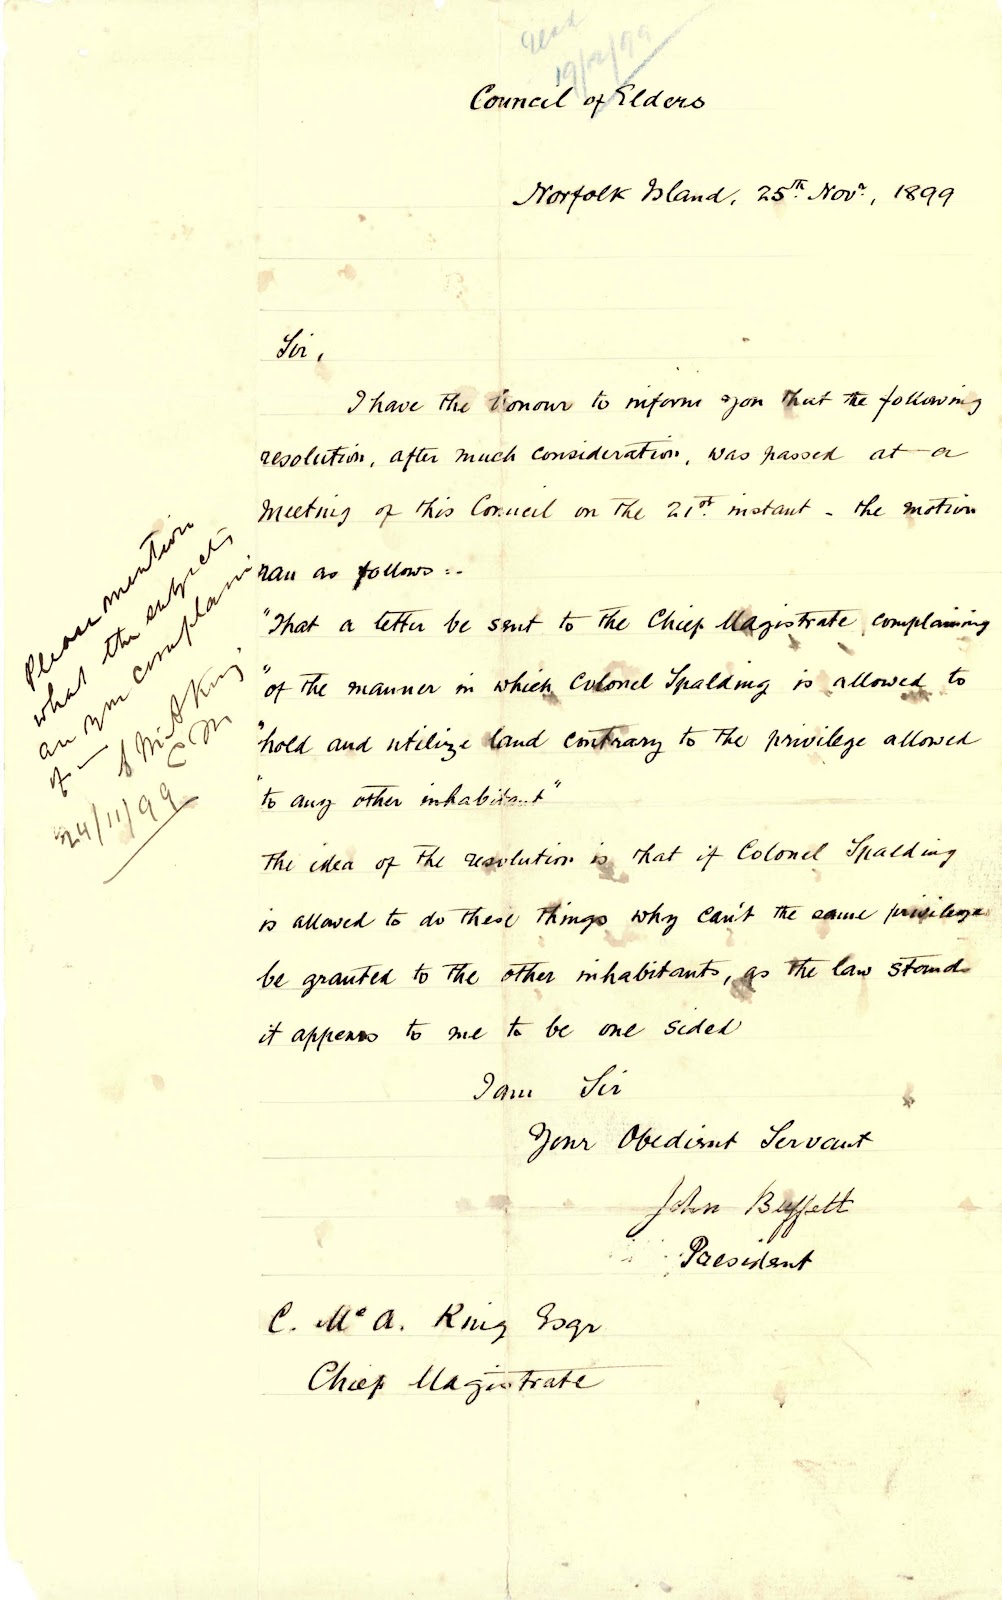 19/12/99
Council of Elders
Norfolk Island, 25th Novr, 1899
Sir,
I have the honour to inform you that the following
resolution, after much consideration, was passed at a
Meeting of this Council on the 21st instant - the motion
ran as follows:-
"That a letter be sent to the Chief Magistrate, complaining
"of the manner in which Colonel Spalding is allowed to
"hold and utilize land contrary to the privilege allowed
"to any other inhabitant"
The idea of the resolution is that if Colonel Spalding
is allowed to do these things why can't the same privilege
be granted to the other inhabitants, as the law stands
it appears to me to be one sided
I am Sir
Your Obedient Servant
John Buffett
President
C. Mc A. King Esqr
Chief Magistrate
Please mention
what the subjects
are you complain
of —
McA King
CM
/11/99